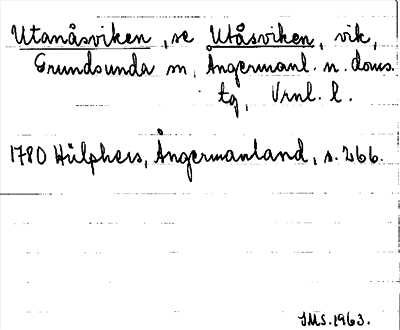 Utanåsviken, se Utåsviken, vik,
Grundsunda sn, Ångermanl. n. doms.
tg, Vrnl. l.
1780 Hülphers, Ångermanland, s. 266.
IMS. 1963.